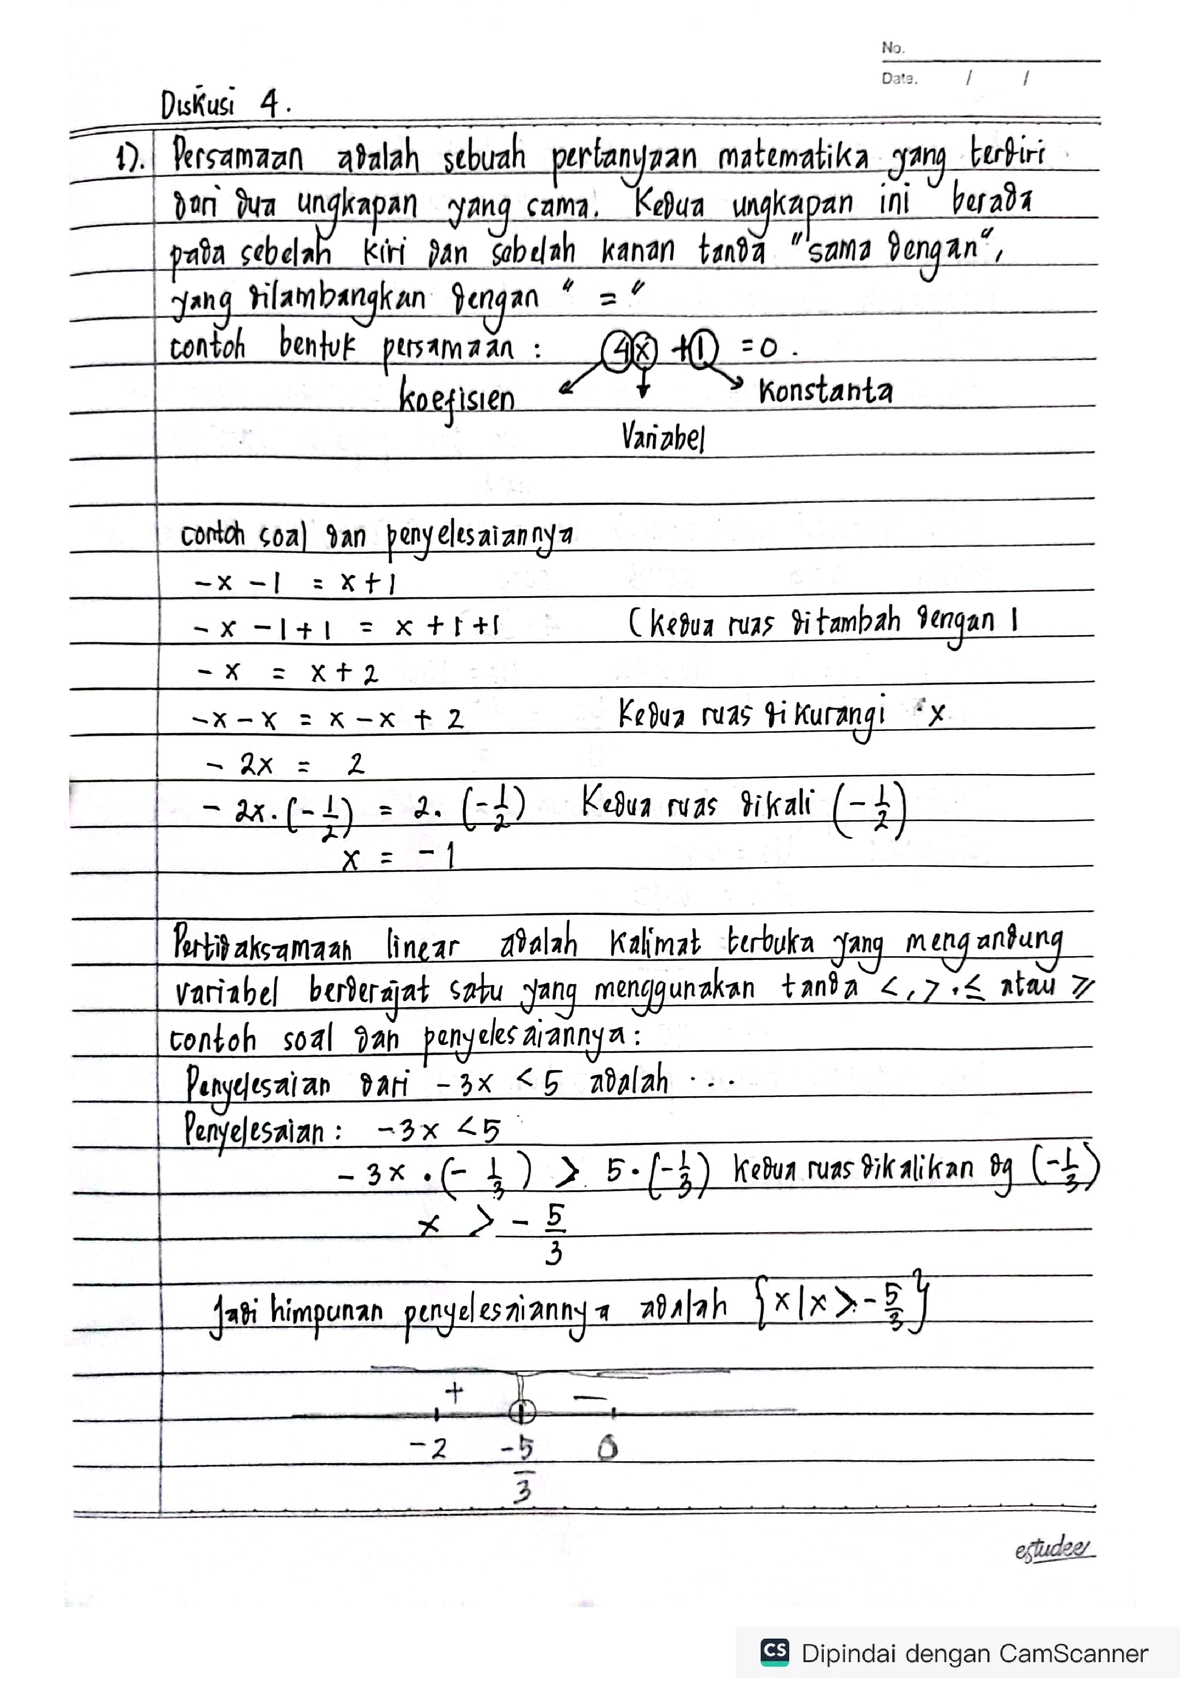 No.
Date. / /
Diskusi 4.
1). Persamaan adalah sebuah pertanyaan matematika yang terdiri
dari dua ungkapan yang sama. Kedua ungkapan ini berada
pada sebelah kiri dan sebelah kanan tanda "sama dengan",
yang dilambangkan dengan " = "
contoh bentuk persamaan : 4x +1 = 0 .
koefisien Konstanta
Variabel
contoh soal dan penyelesaiannya
-x -1 = x+1
-x -1+1 = x +1 +1 (Kedua ruas ditambah dengan 1
-x = x + 2
-x-x = x-x + 2 Kedua ruas dikurangi x
- 2x = 2
- 2x. (-1/2) = 2. (-1/2) Kedua ruas dikali (-1/2)
x = -1
Pertidaksamaan linear adalah Kalimat terbuka yang mengandung
variabel berderajat satu yang menggunakan tanda <, >, ≤ atau ≥
contoh soal dan penyelesaiannya :
Penyelesaian dari -3x < 5 adalah ...
Penyelesaian : -3x < 5
-3x . (-1/3) > 5 . (-1/3) Kedua ruas dikalikan dg (-1/3)
x > -5/3
Jadi himpunan penyelesaiannya adalah {x|x > -5/3}
+ -
-2 -5/3 0
estudee
CS Dipindai dengan CamScanner